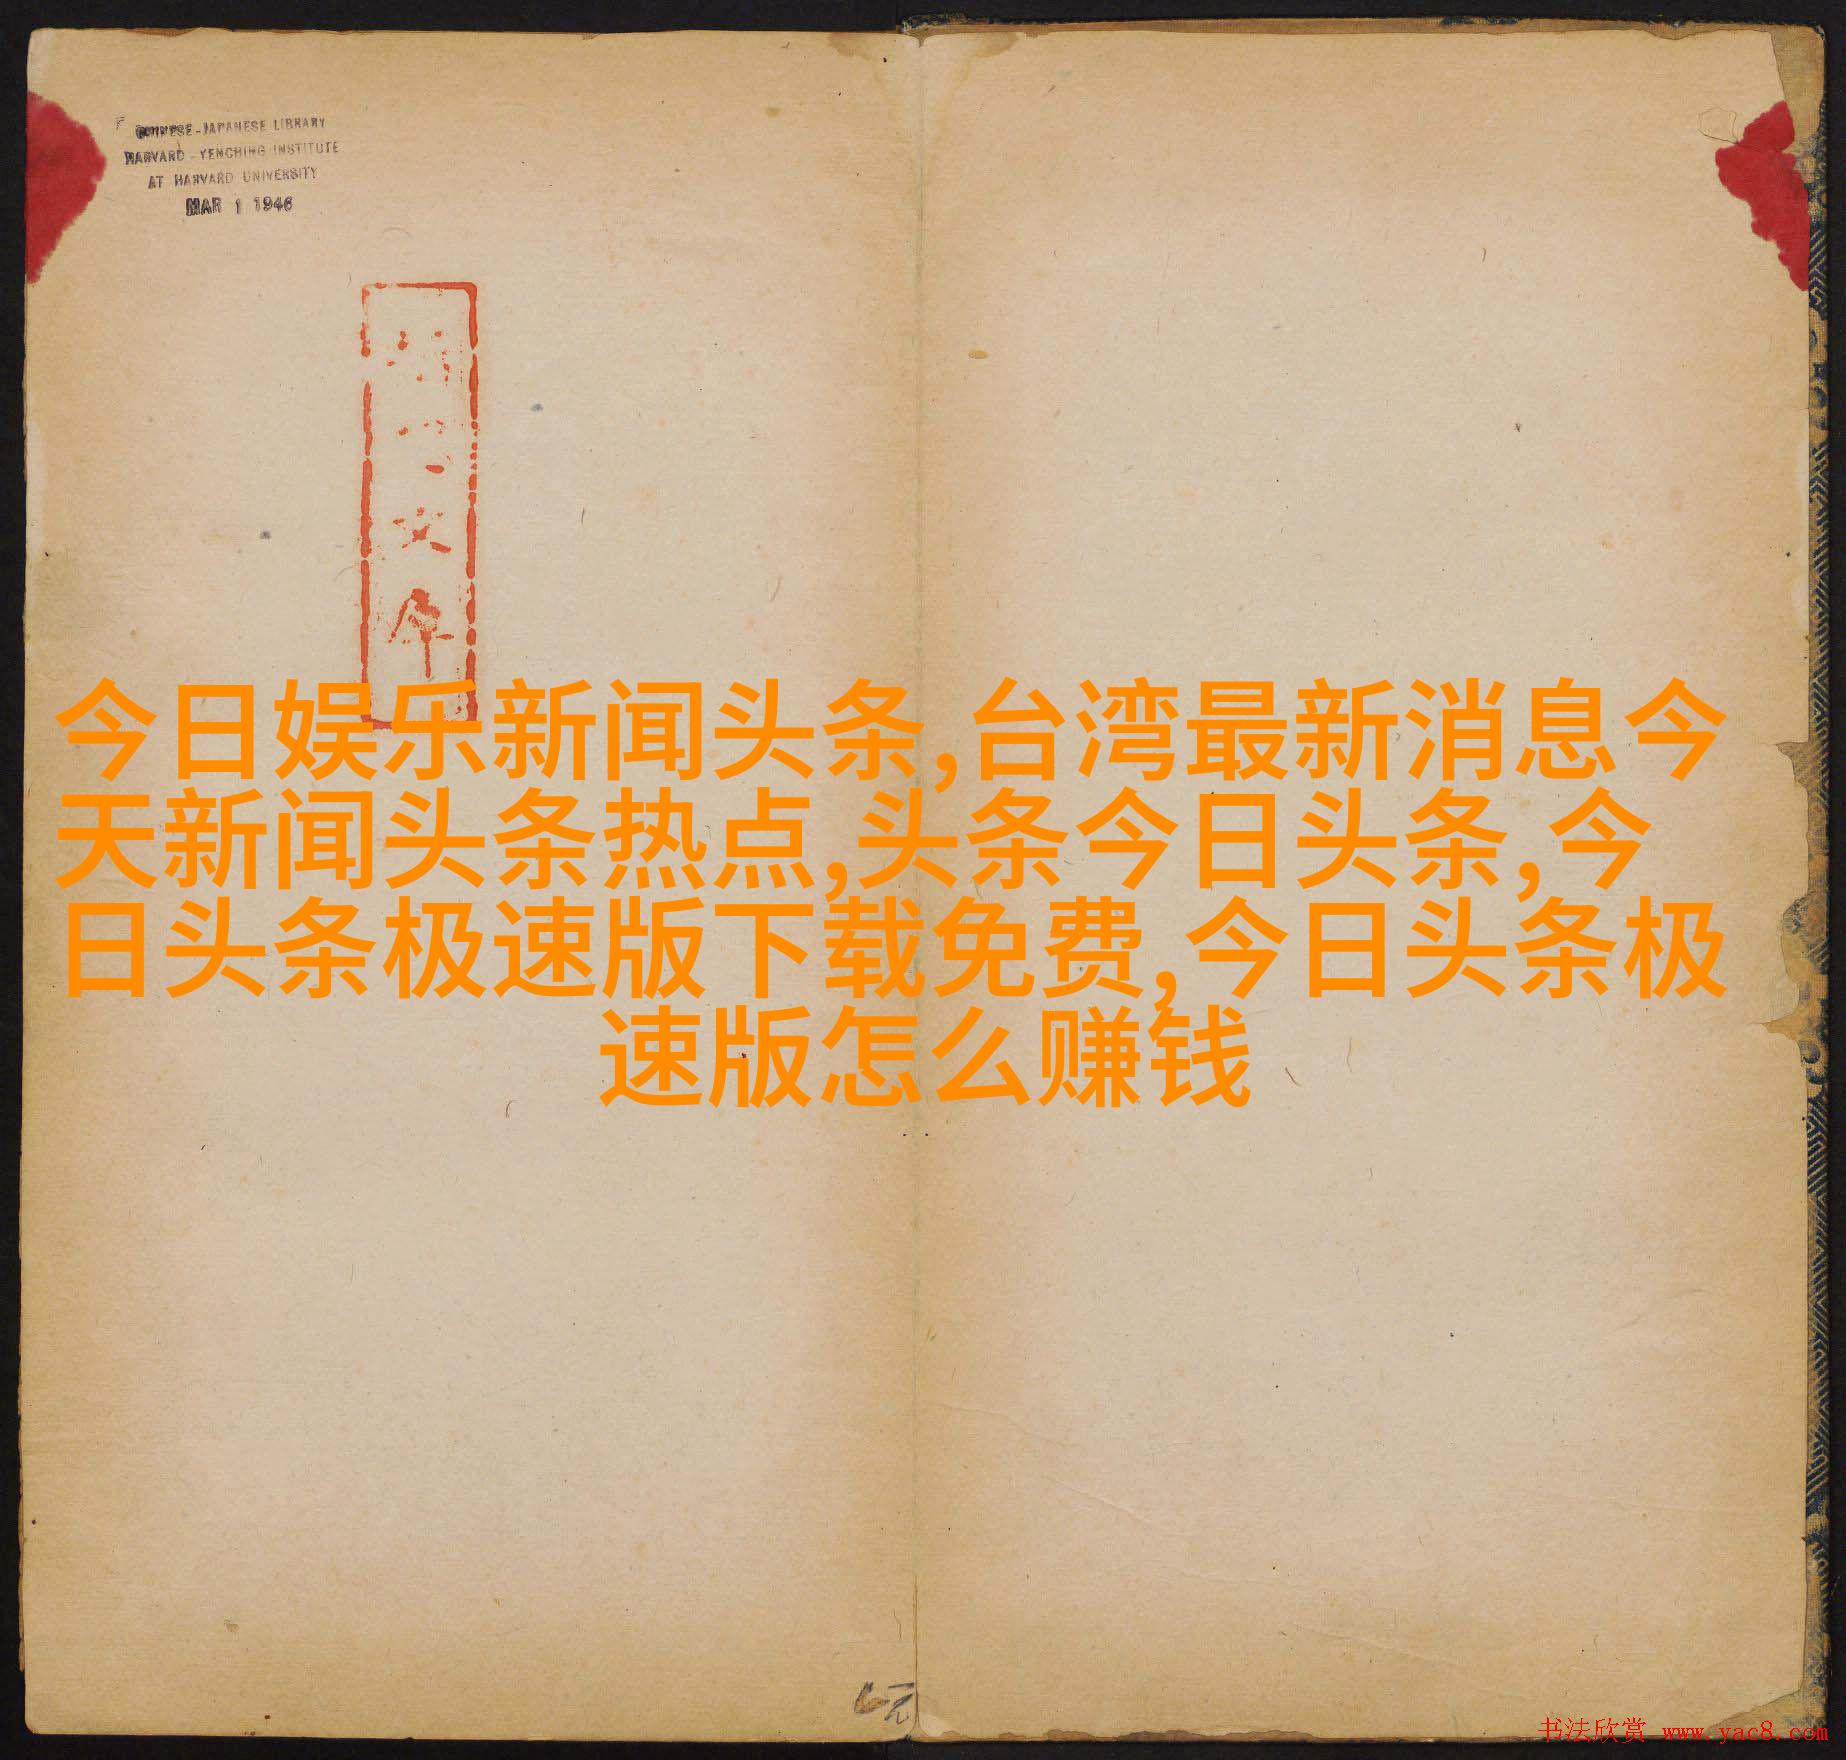 CHINESE-JAPANESE LIBRARY
HARVARD-YENCHING INSTITUTE
AT HARVARD UNIVERSITY
MAR 1 1946
今日娱乐新闻头条,台湾最新消息今
天新闻头条热点,头条今日头条,今
日头条极速版下载免费,今日头条极
速版怎么赚钱
书法欣赏 www.yac8.com